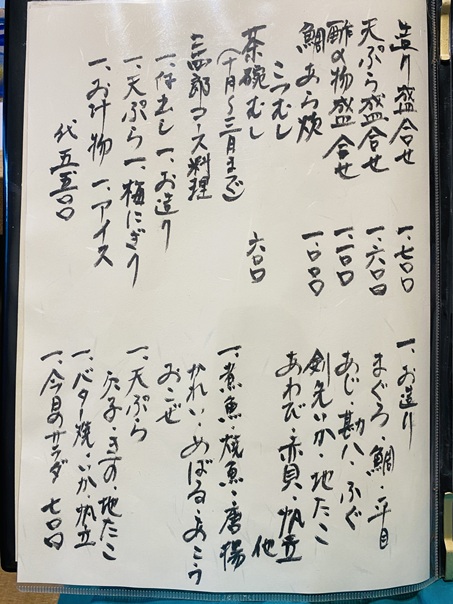 造り盛合せ 一、七〇〇
天ぷら盛合せ 一、六〇〇
酢の物盛合せ 一、一〇〇
鯛あら炊 一、〇〇〇
こつむし
茶碗むし 六〇〇
(十月〜三月まで)
三四郎コース料理
一、付出し 一、お造り
一、天ぷら 一、梅にぎり
一、お汁物 一、アイス
代 五五〇〇
一、お造り
まぐろ・鯛・平目
あじ・勘八・ふぐ
剣先いか・地たこ
あわび・赤貝・帆立
他
一、煮魚・焼魚・唐揚
かれい・めばる・あこう
おこぜ
一、天ぷら
穴子・きす・地たこ
一、バター焼・いか・帆立
一、今日のサラダ 七〇〇